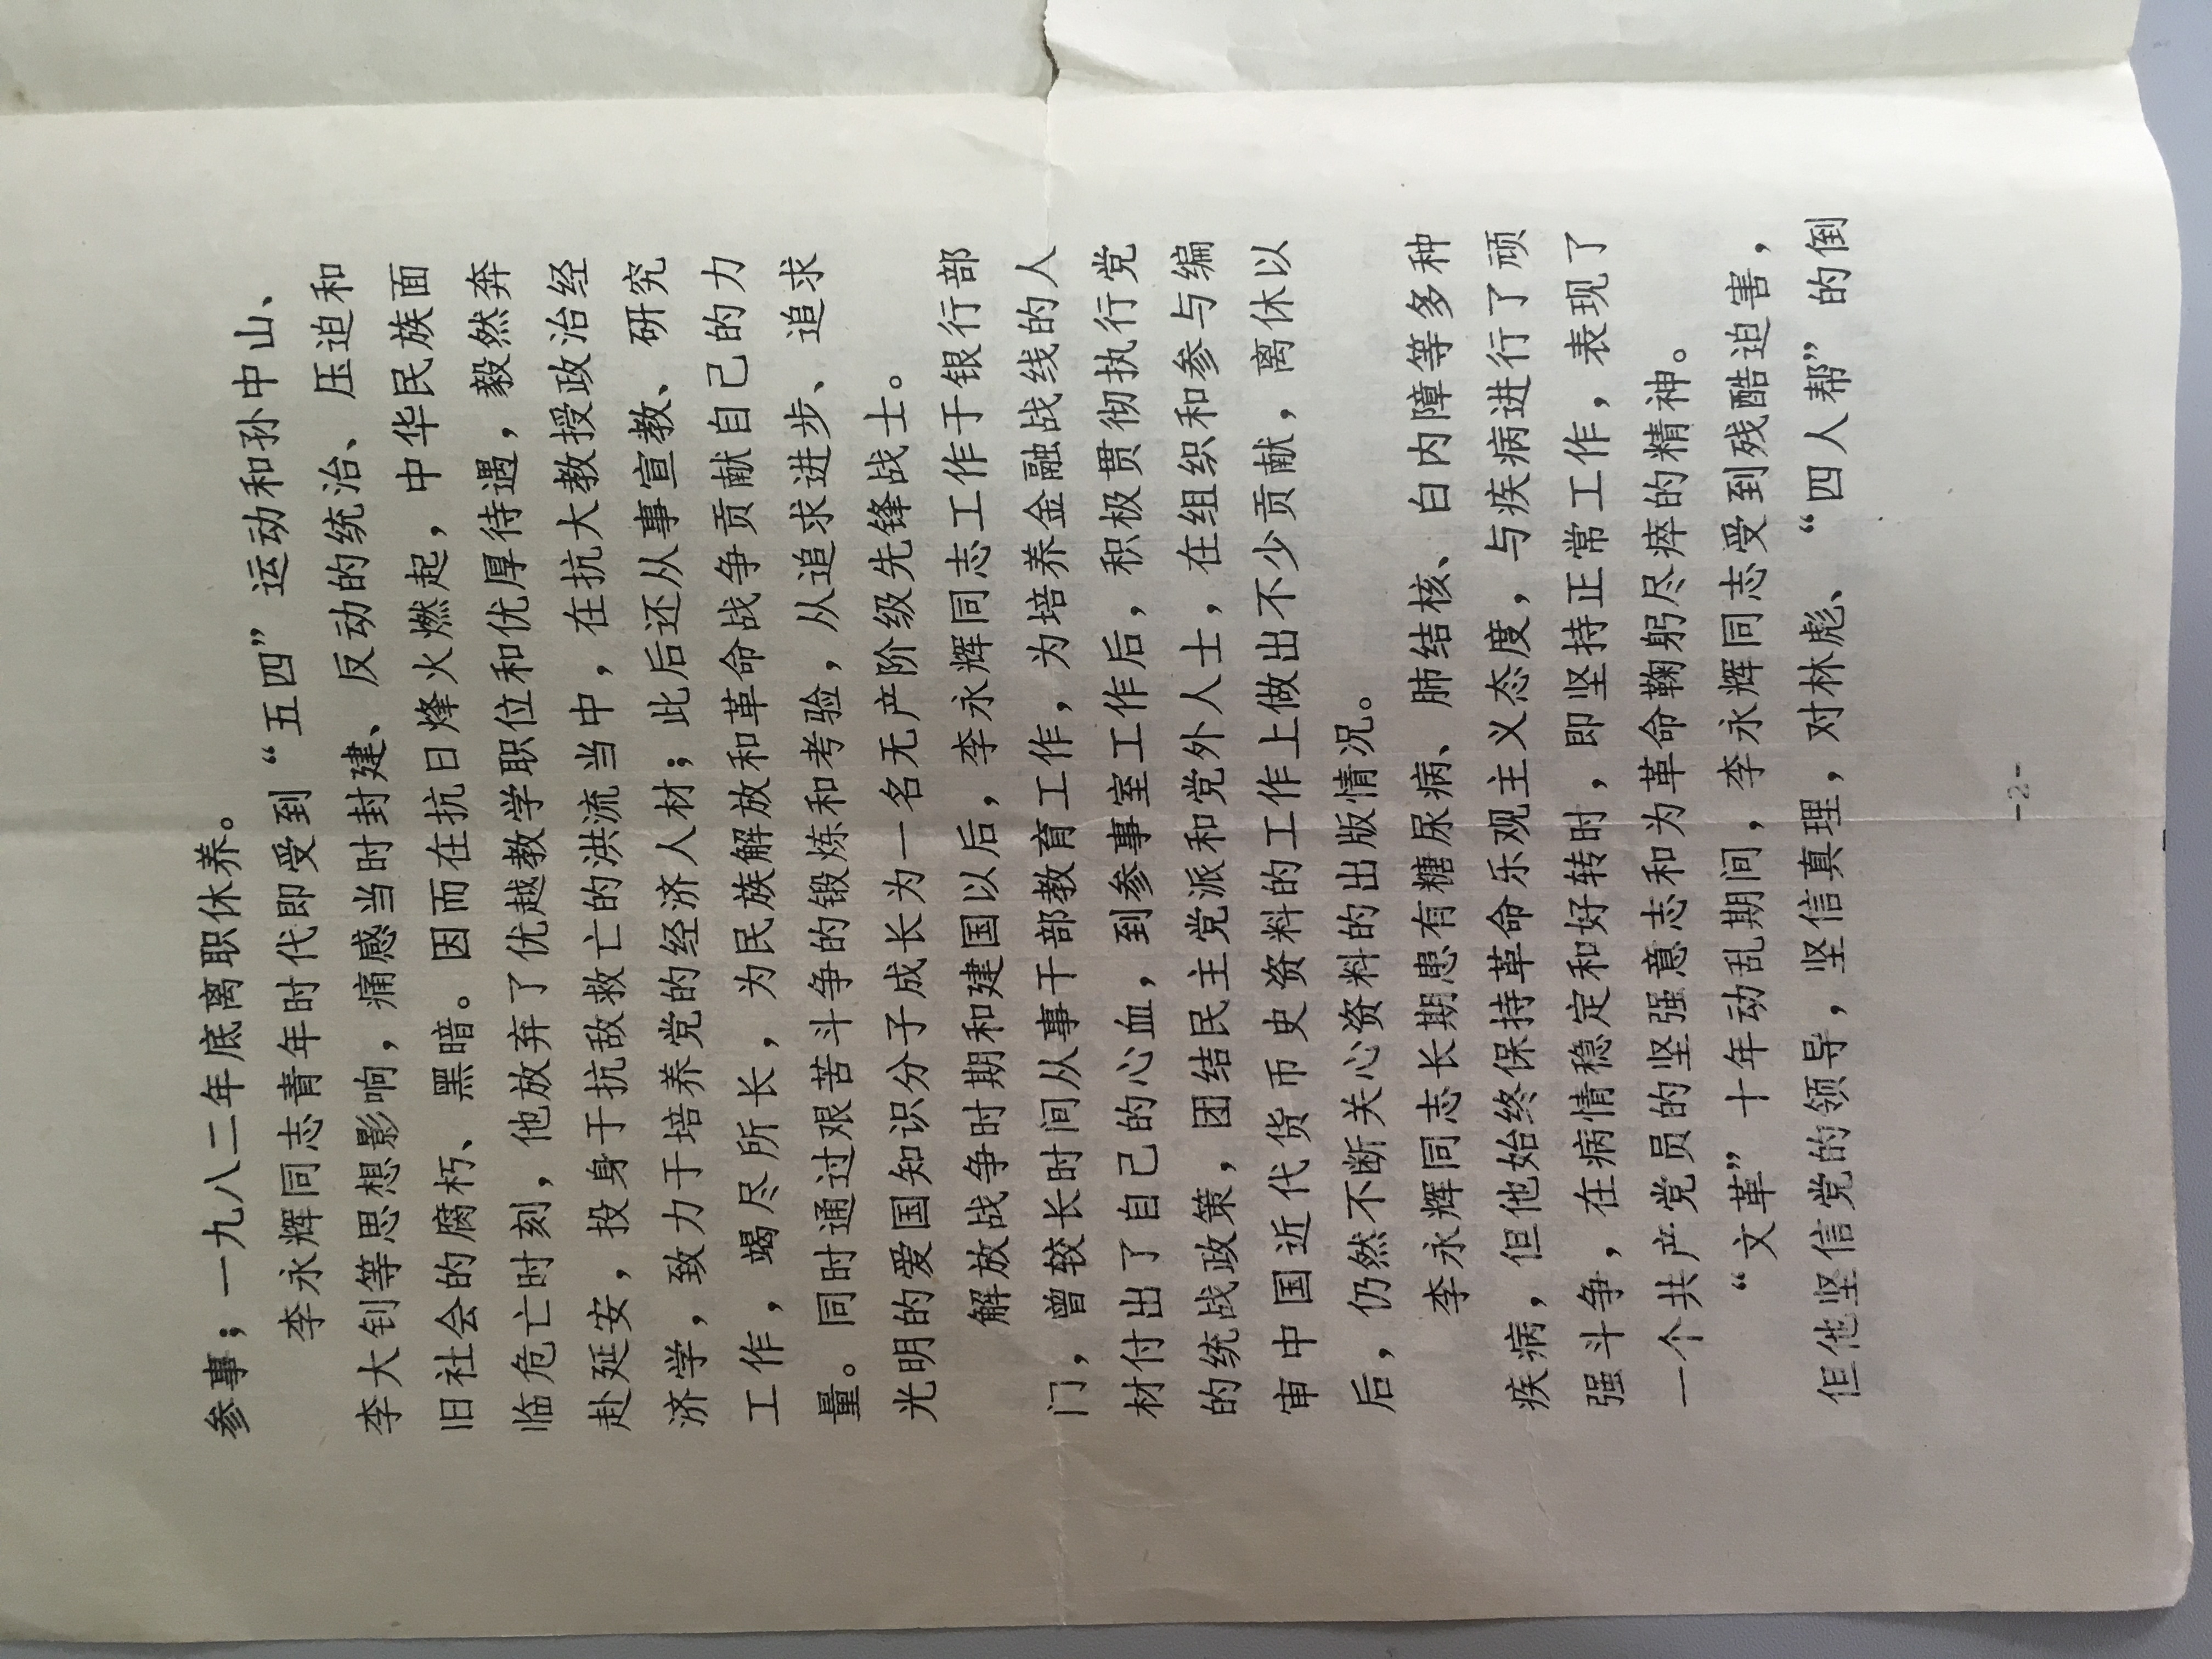 参事；一九八二年底离职休养。
李永辉同志青年时代即受到“五四”运动和孙中山、
李大钊等思想影响，痛感当时封建、反动的统治、压迫和
旧社会的腐朽、黑暗。因而在抗日烽火燃起，中华民族面
临危亡时刻，他放弃了优越教学职位和优厚待遇，毅然奔
赴延安，投身于抗敌救亡的洪流当中，在抗大教授政治经
济学，致力于培养党的经济人材；此后还从事宣教、研究
工作，竭尽所长，为民族解放和革命战争贡献自己的力
量。同时通过艰苦斗争的锻炼和考验，从追求进步、追求
光明的爱国知识分子成长为一名无产阶级先锋战士。
解放战争时期和建国以后，李永辉同志工作于银行部
门，曾较长时间从事干部教育工作，为培养金融战线的人
材付出了自己的心血，到参事室工作后，积极贯彻执行党
的统战政策，团结民主党派和党外人士，在组织和参与编
审中国近代货币史资料的工作上做出不少贡献，离休以
后，仍然不断关心资料的出版情况。
李永辉同志长期患有糖尿病、肺结核、白内障等多种
疾病，但他始终保持革命乐观主义态度，与疾病进行了顽
强斗争，在病情稳定和好转时，即坚持正常工作，表现了
一个共产党员的坚强意志和为革命鞠躬尽瘁的精神。
“文革”十年动乱期间，李永辉同志受到残酷迫害，
但他坚信党的领导，坚信真理，对林彪、“四人帮”的倒
-2-